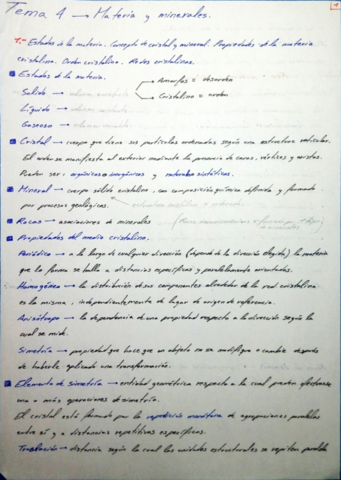 1
Tema 4 → Materia y minerales.
1.- Estados de la materia. Concepto de cristal y mineral. Propiedades de la materia
cristalina. Orden cristalino. Redes cristalinas.
Estados de la materia.
Sólido → → Amorfos = desorden
→ Cristalino = orden
Líquido →
Gaseoso →
Cristal → cuerpo que tiene sus partículas ordenadas según una estructura reticular.
El orden se manifiesta al exterior mediante la presencia de caras, vértices y aristas.
Pueden ser: orgánicos o inorgánicos y naturales o sintéticos.
Mineral → cuerpo sólido cristalino, con composición química definida y formado
por procesos geológicos.
Rocas → asociaciones de minerales
Propiedades del medio cristalino.
Periódico → a lo largo de cualquier dirección (depende de la dirección elegida) la materia
que lo forma se halla a distancias específicas y paralelamente orientada.
Homogéneo → la distribución de sus componentes alrededor de la red cristalina
es la misma, independientemente de lugar de origen de referencia.
Anisótropo → la dependencia de una propiedad respecto a la dirección según la
cual se mide.
Simetría → propiedad que hace que un objeto no se modifique o cambie después
de haberle aplicado una transformación.
Elemento de simetría → entidad geométrica respecto a la cual pueden efectuarse
una o más operaciones de simetría.
El cristal está formado por la repetición monótona de agrupaciones paralelas
entre sí y a distancias repetitivas específicas.
Traslación → distancia según la cual las unidades estructurales se repiten paralela